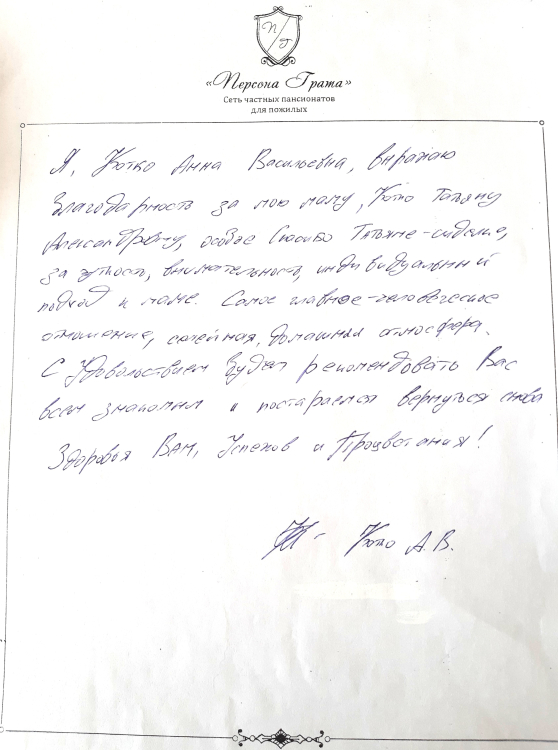 П Г
«Персона Грата»
Сеть частных пансионатов
для пожилых
Я, Котко Анна Васильевна, выражаю
благодарность за мою маму, Котко Татьяну
Александровну, особое спасибо Татьяне-сиделке,
за чуткость, внимательность, индивидуальный
подход к маме. Самое главное-человеческое
отношение, семейная, домашняя атмосфера.
С Удовольствием будем рекомендовать Вас
всем знакомым и постараемся вернуться снова
Здоровья Вам, Успехов и Процветания!
Котко А.В.